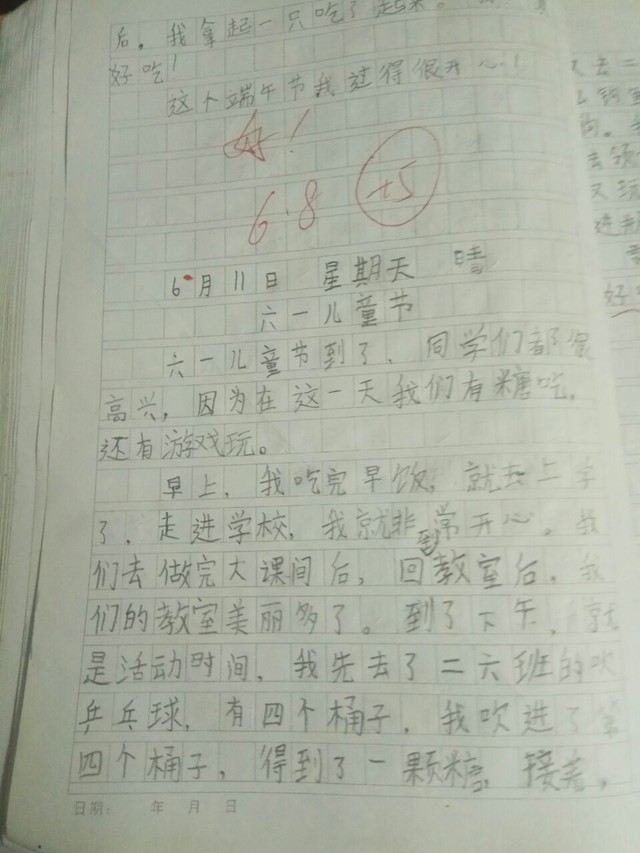 后，我拿起一只吃了起来。
好吃！
这个端午节我过得很开心！
好！
6.8
+5
6月11日 星期天 晴
六一儿童节
六一儿童节到了，同学们都很
高兴，因为在这一天我们有糖吃，
还有游戏玩。
早上，我吃完早饭，就去上学
了，走进学校，我就非常开心。我
们去做完大课间后，回到教室后，我
们的教室美丽多了。到了下午，就
是活动时间，我先去了二六班的吹
乒乓球，有四个桶子，我吹进了第
四个桶子，得到了一颗糖，接着，
日期： 年 月 日
去二
去领
又玩
好